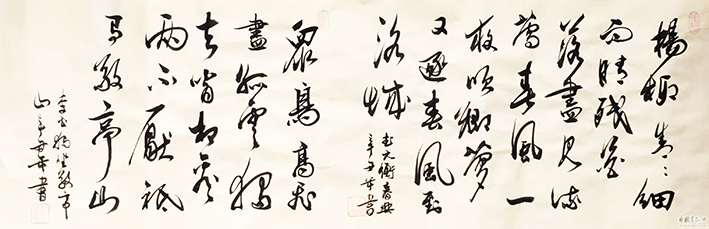 楊柳青〻細
雨晴殘花
落盡見流
鶯春風一
夜吹鄉夢
又逐春風到
洛城
武元衡春興
辛丑年書
眾鳥高飛
盡孤雲獨
去閒相看
兩不厭祗
有敬亭山
李白獨坐敬亭
山辛丑年書